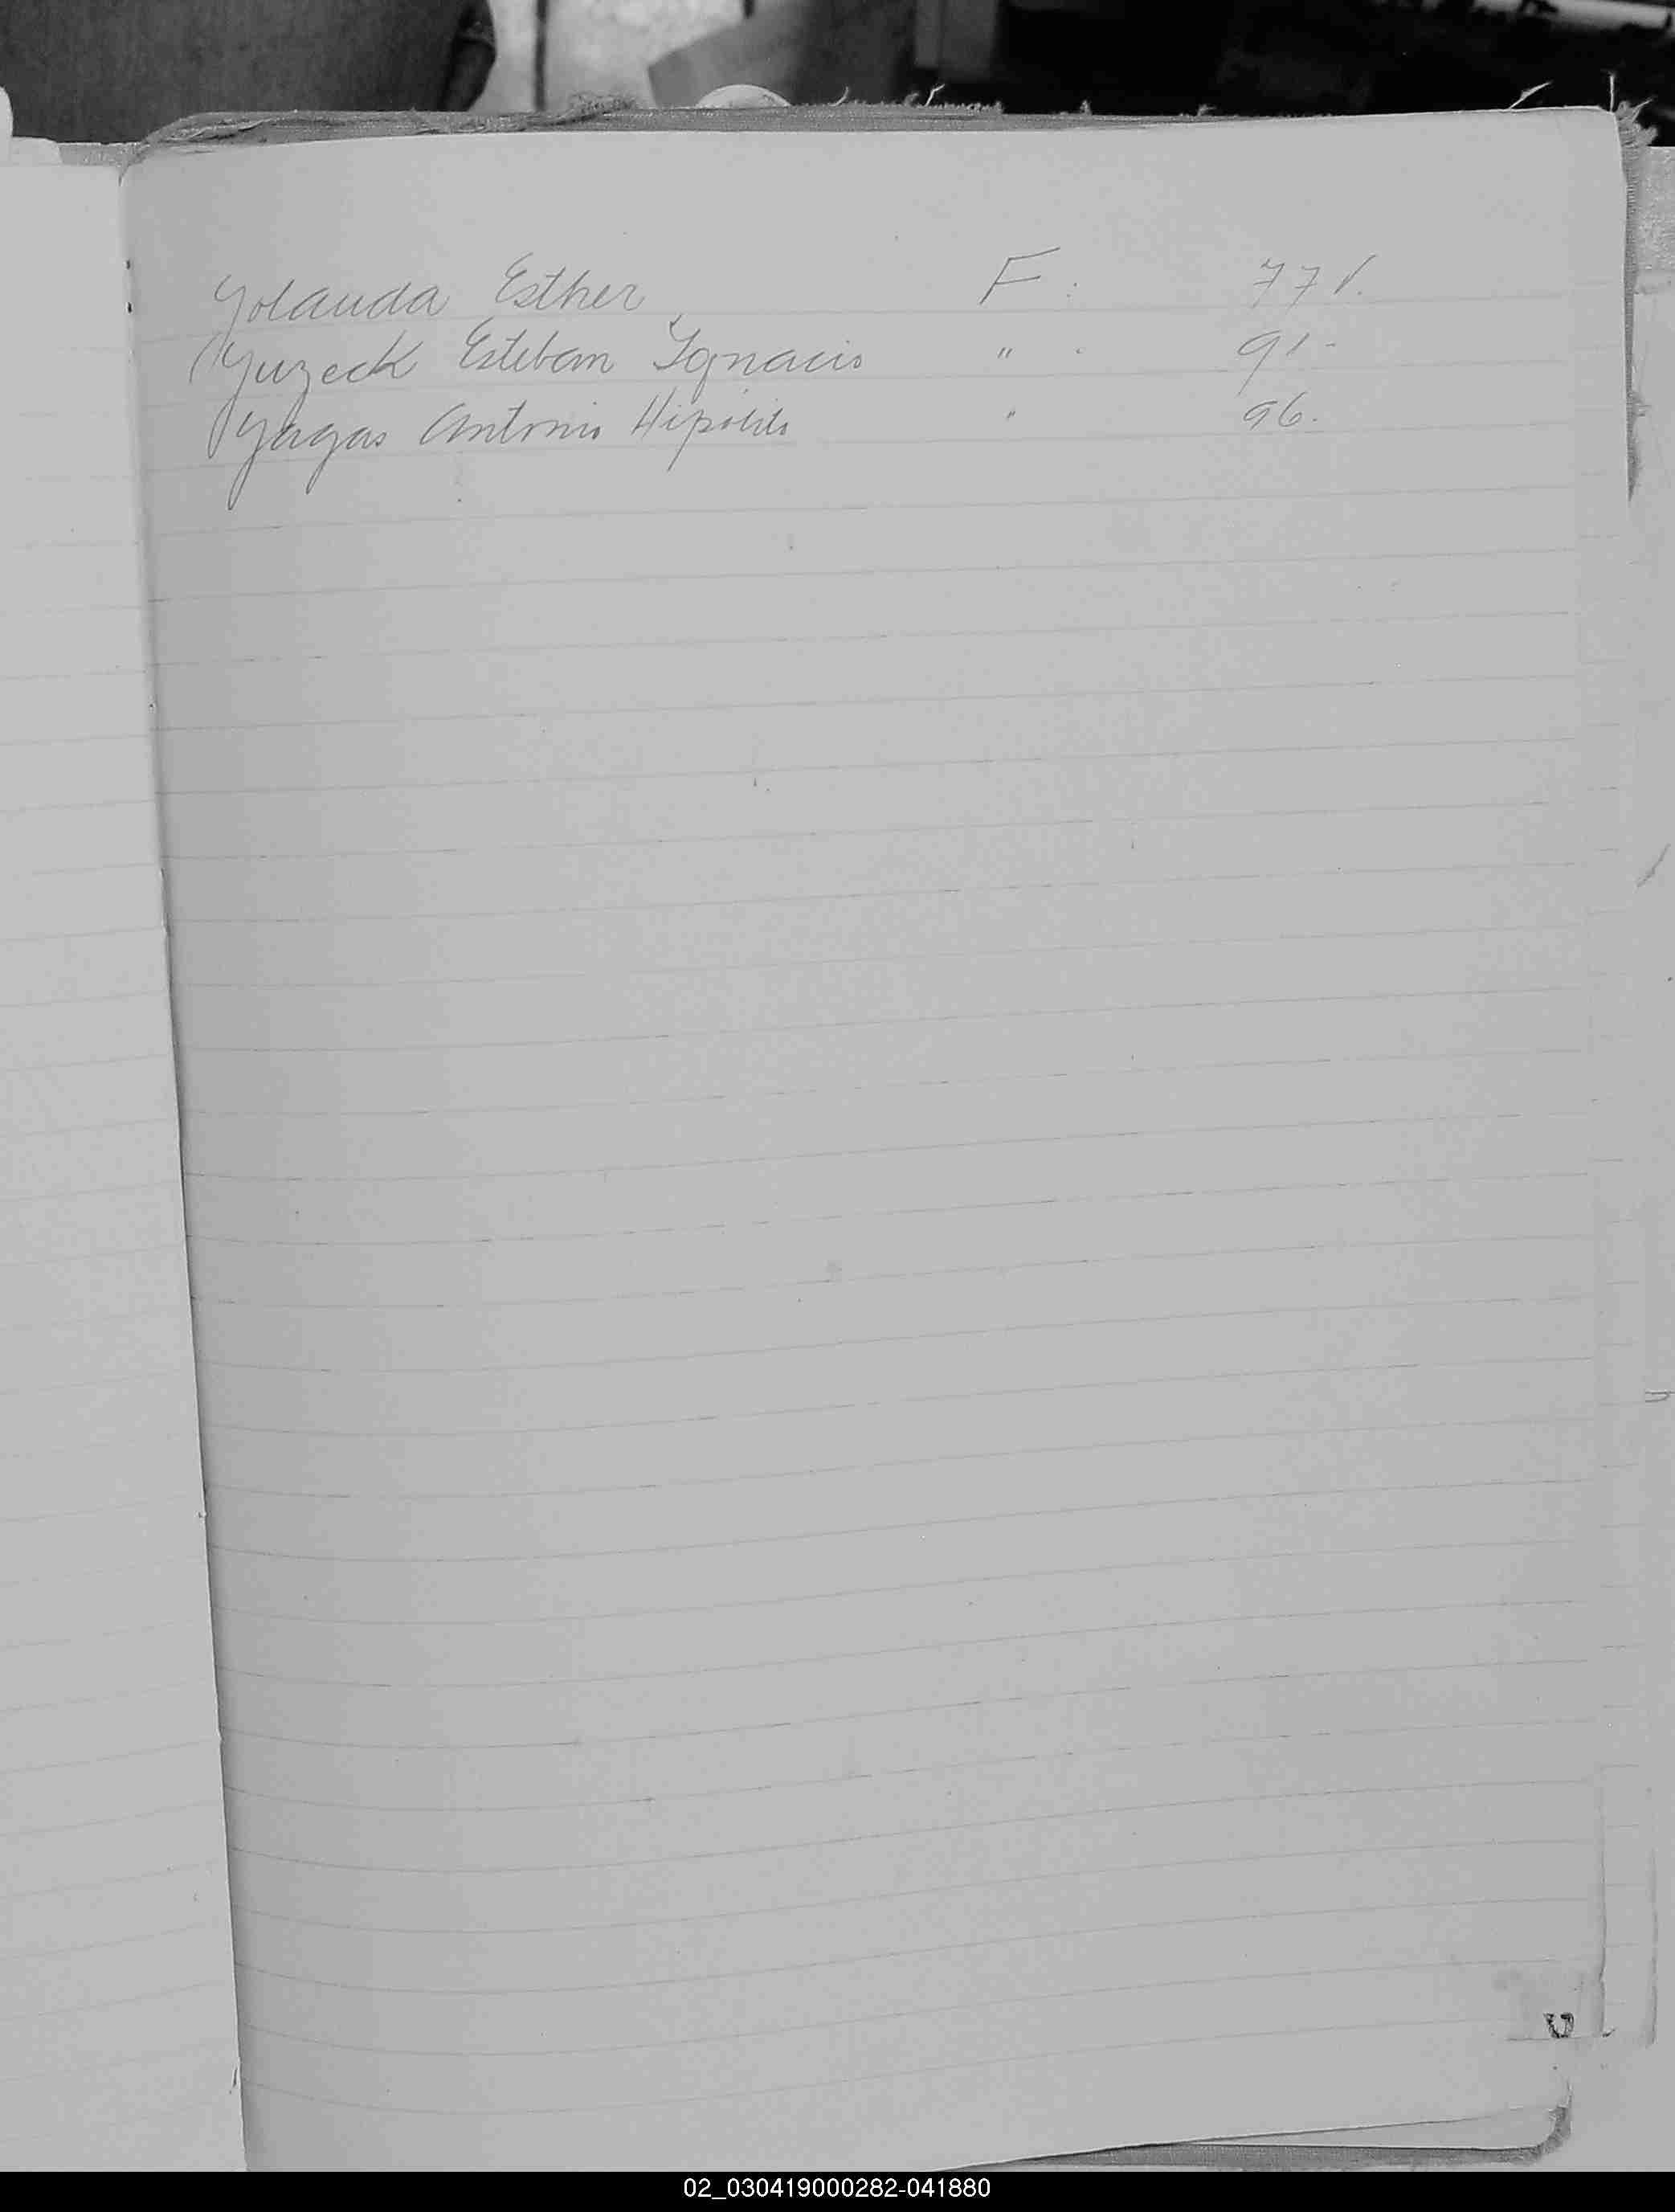 Yolanda Esther F: 77 v.
Yuzeck Esteban Ignacio " . 91-
Yagas Antonio Hipólito " 96.
02_030419000282-041880